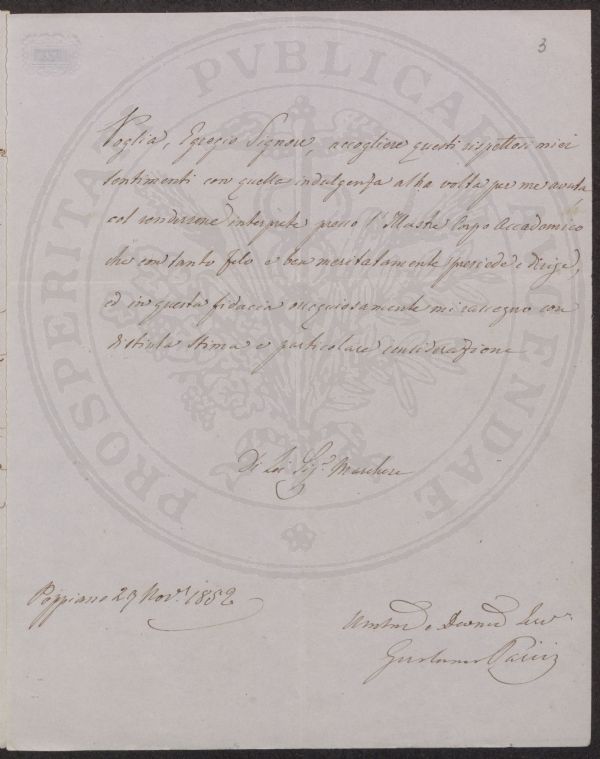 3
Voglia, Egregio Signore, accogliere questi rispettosi miei
sentimenti con quella indulgenza altra volta per me avuta
col rendersene interprete presso l'Illustre Corpo Accademico
che con tanto zelo e ben meritatamente presiede e dirige,
ed in questa fiducia ossequiosamente mi rassegno con
distinta stima e particolare considerazione
Di Lei Sig.r Marchese
Poppiano 29 Nov.e 1852
e Devmo
PROSPERITATI PVBLICAE AVGENDAE